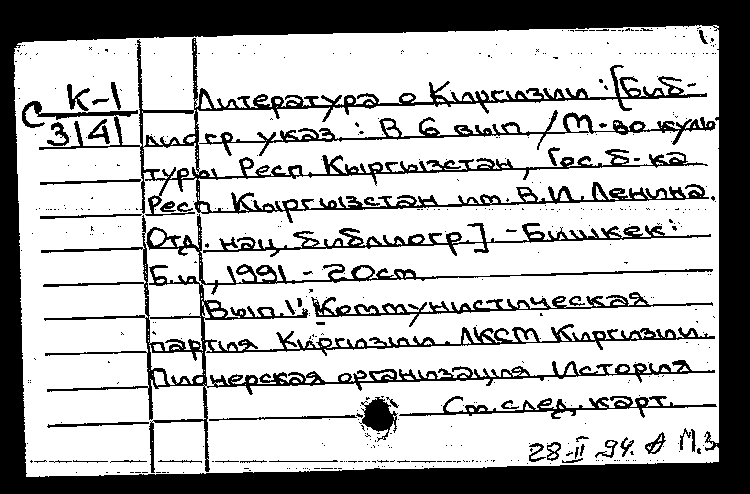 1.
К-1
С 3141
Литература о Киргизии : [Биб-
лиогр. указ. : В 6 вып. / М-во куль
туры Респ. Кыргызстан, Гос. б-ка
Респ. Кыргызстан им. В.И. Ленина.
Отд. нац. библиогр.]. - Бишкек :
Б.и., 1991. - 20 см.
Вып. 1: Коммунистическая
партия Киргизии. ЛКСМ Киргизии.
Пионерская организация. История
См. след. карт.
28-II 94. М.З.